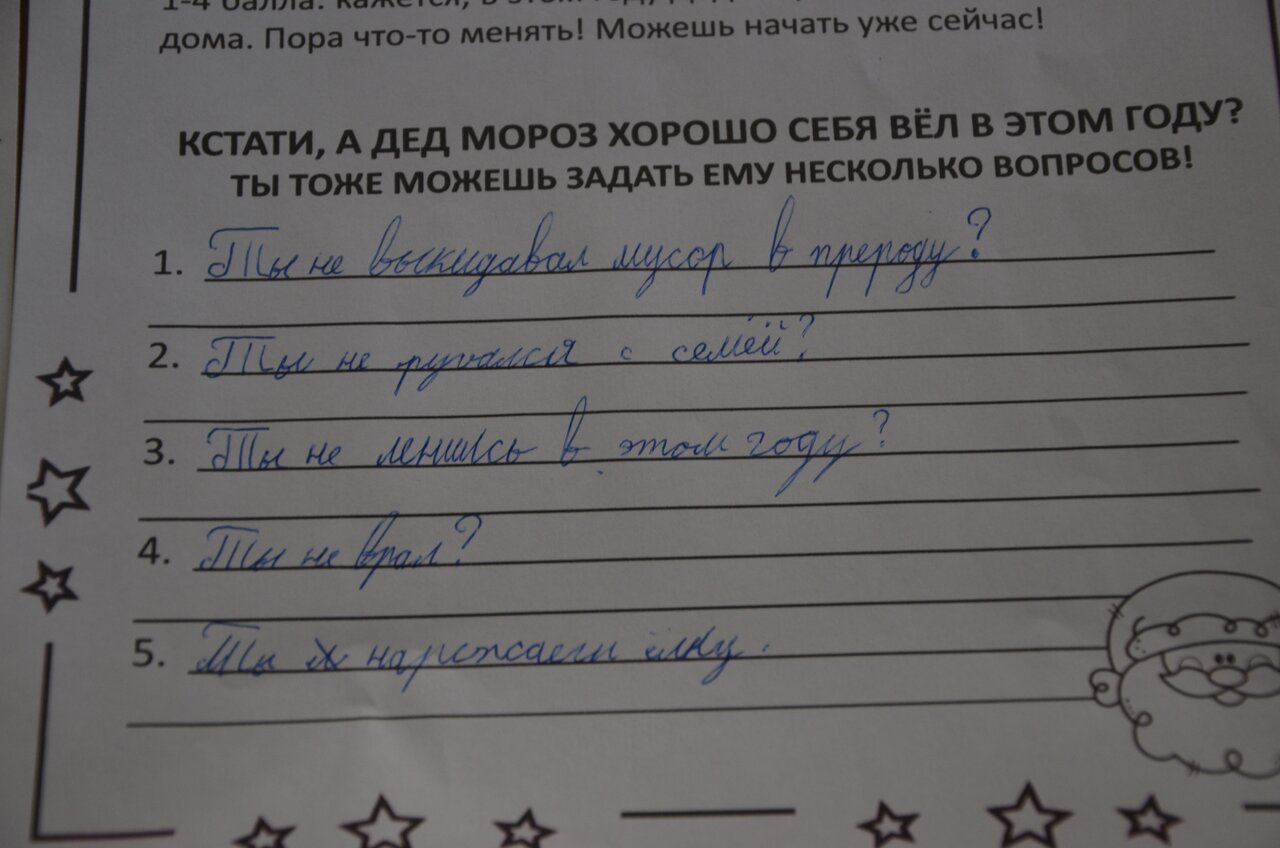 1-4 балла: кажется, в этом году
дома. Пора что-то менять! Можешь начать уже сейчас!
КСТАТИ, А ДЕД МОРОЗ ХОРОШО СЕБЯ ВЁЛ В ЭТОМ ГОДУ?
ТЫ ТОЖЕ МОЖЕШЬ ЗАДАТЬ ЕМУ НЕСКОЛЬКО ВОПРОСОВ!
1. Ты не выкидавал мусор в прероду?
2. Ты не ругался с семёй?
3. Ты не ленилсь в этом году?
4. Ты не врал?
5. Ты наряжаеш ёлку.